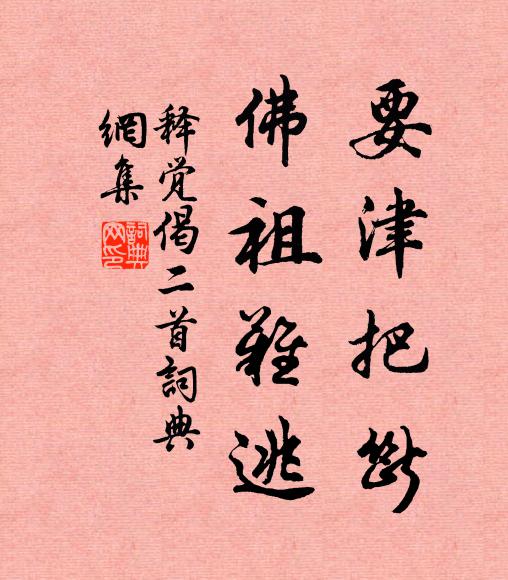 要津把断
佛祖難逃
释觉偈二首詞典
網集
詞典
网印